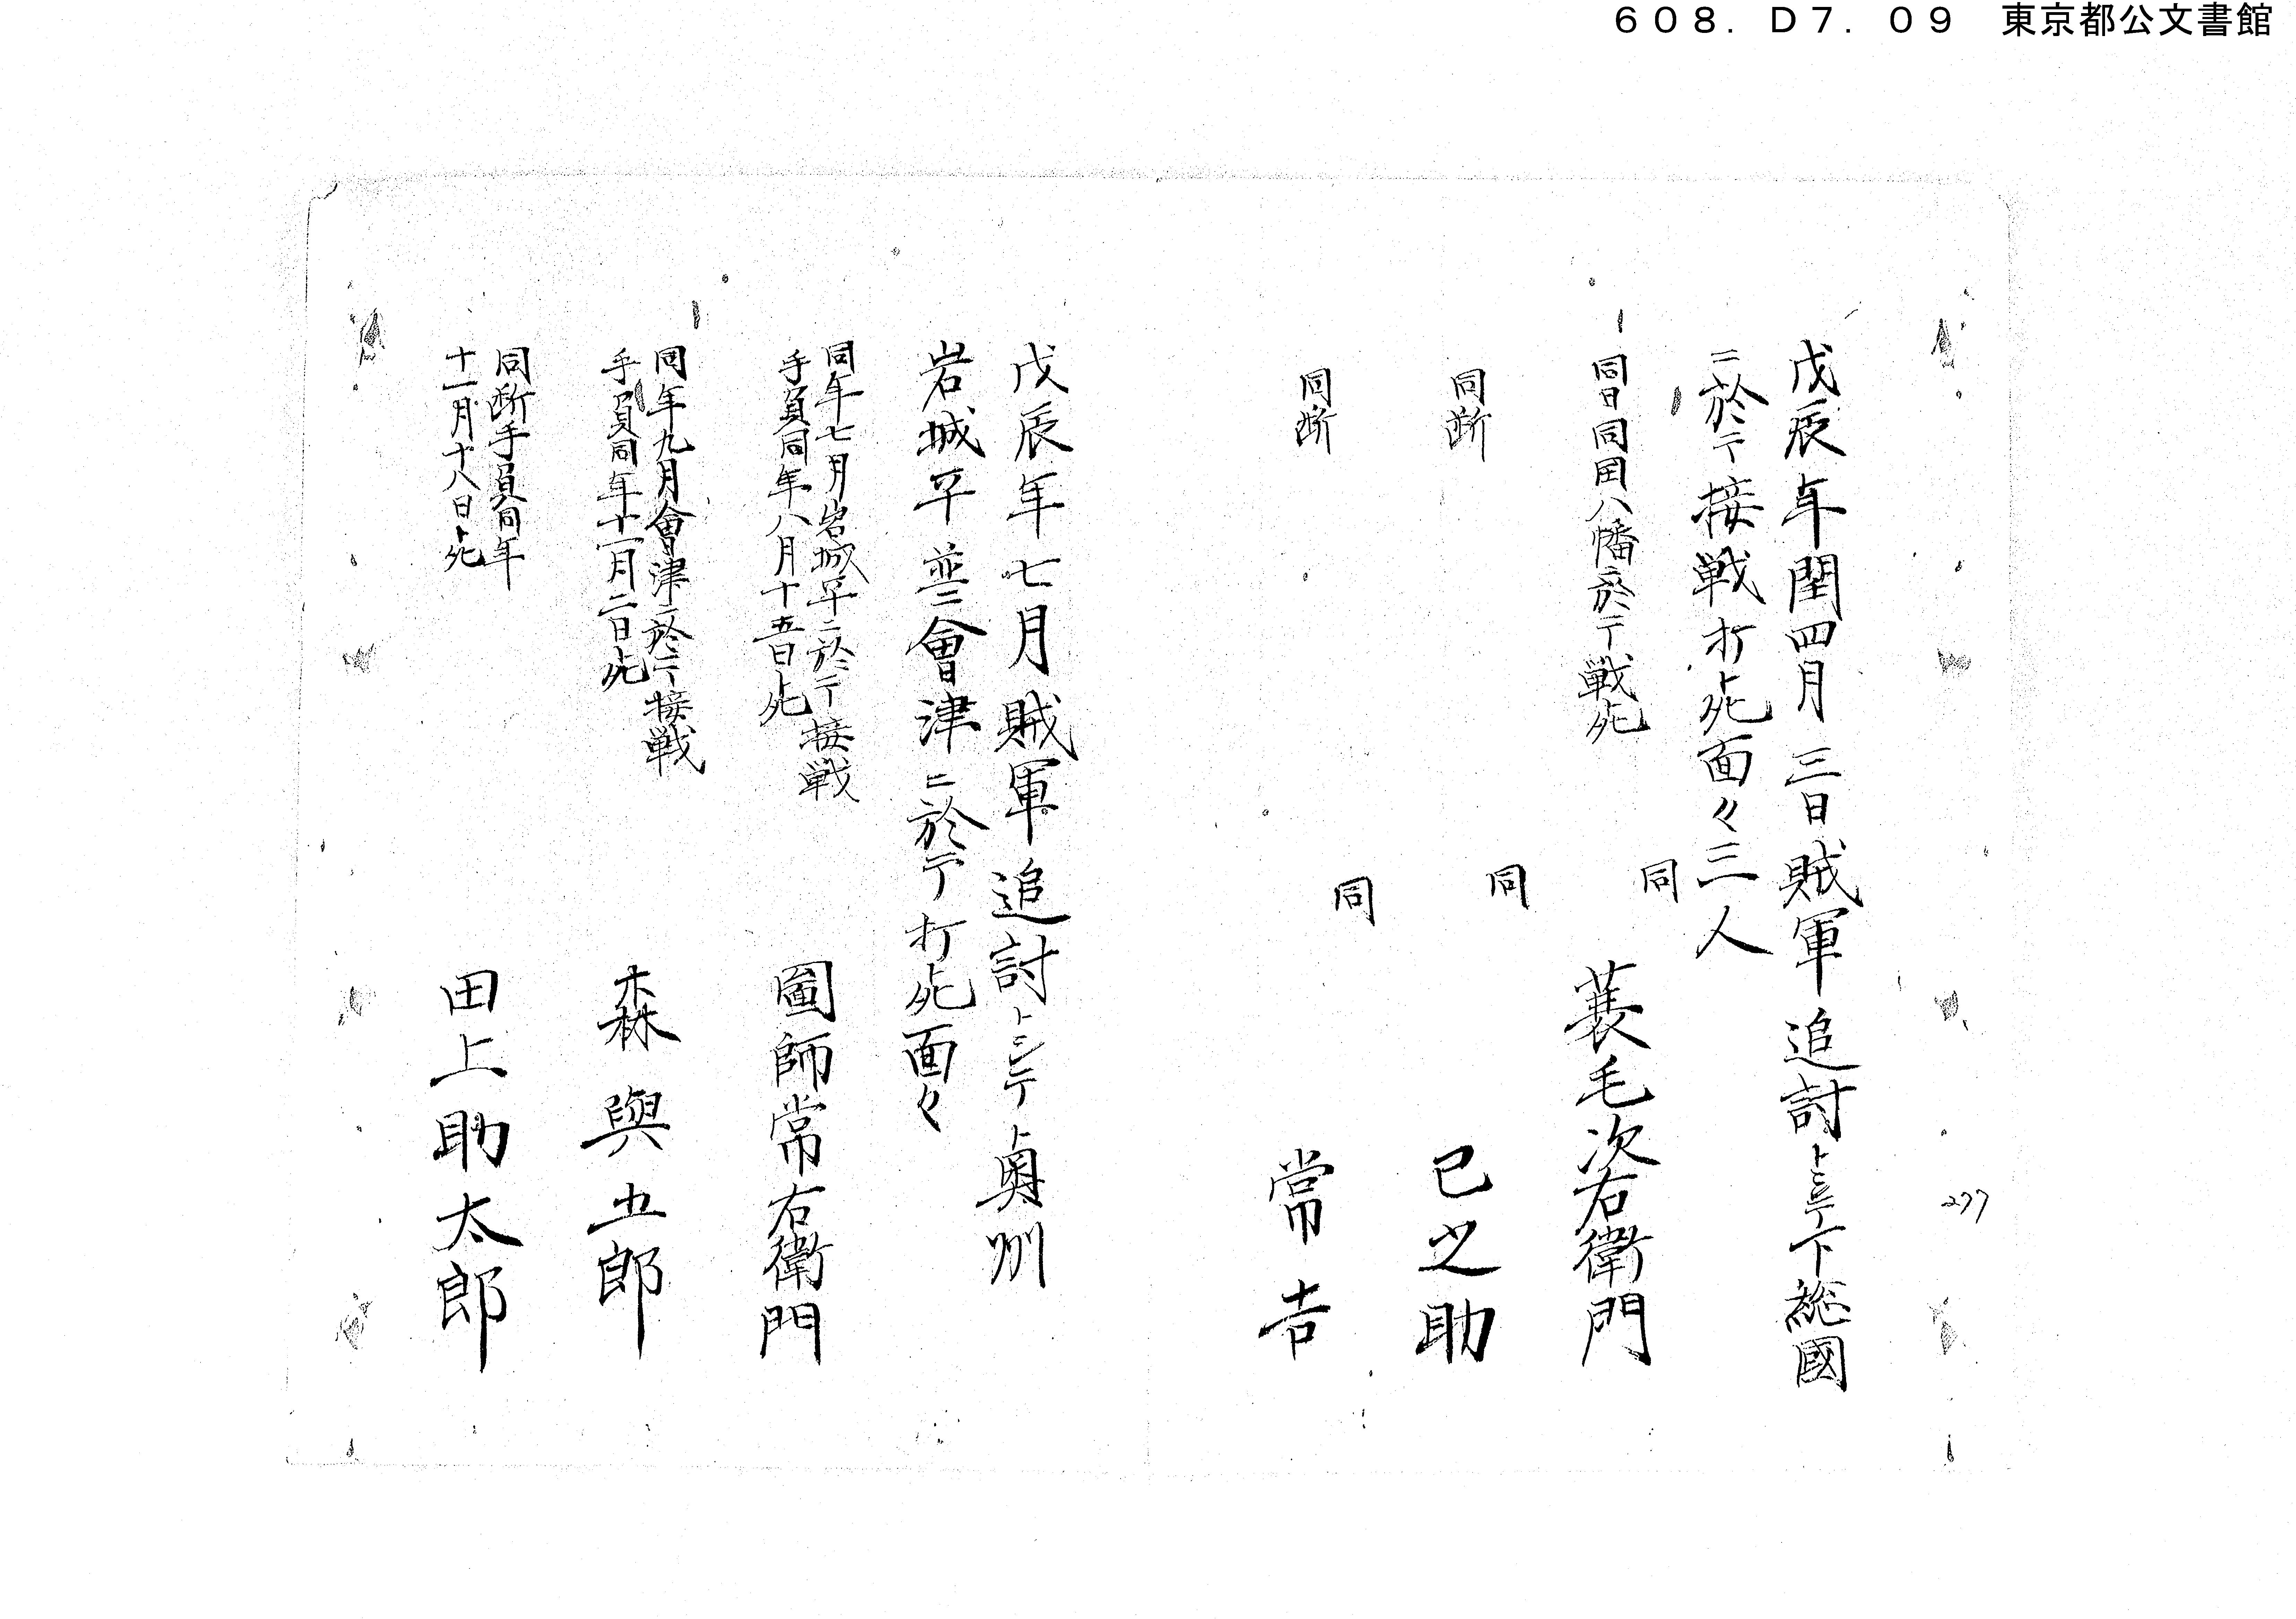 608.D7.09 東京都公文書館
戊辰年閏四月三日賊軍追討トシテ下総國
ニ於テ接戦打死面々三人
同日同国八幡ニ於テ戦死 同 蓑毛次右衛門
同断 同 巳之助
同断 同 常吉
戊辰年七月賊軍追討トシテ奥州
岩城平並ニ會津ニ於テ打死面々
同年七月岩城平ニ於テ接戦
手負同年八月十五日死
圖師常右衛門
同年九月會津ニ於テ接戦
手負同年十一月二日死
森與五郎
同断手負同年
十一月十八日死
田上助太郎
277